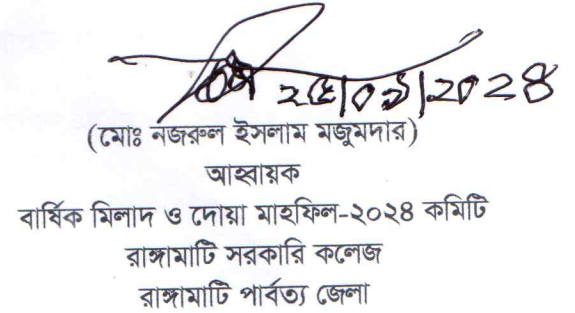 ২৫|০৯|২০২৪
(মোঃ নজরুল ইসলাম মজুমদার)
আহবায়ক
বার্ষিক মিলাদ ও দোয়া মাহফিল-২০২৪ কমিটি
রাঙ্গামাটি সরকারি কলেজ
রাঙ্গামাটি পার্বত্য জেলা